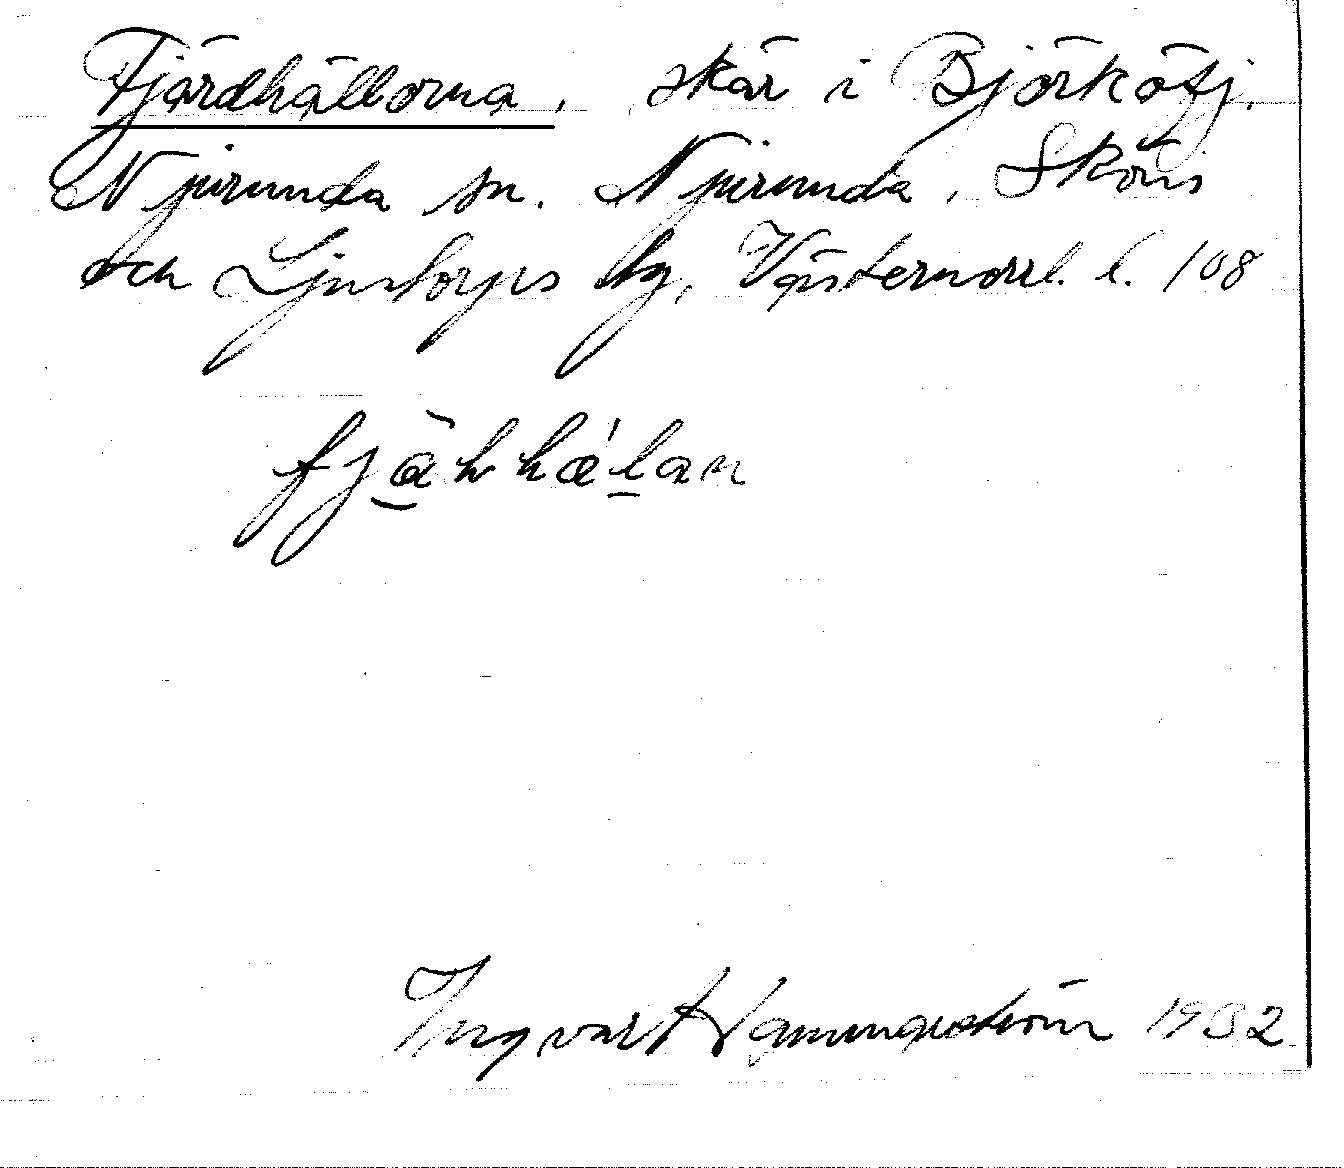 Fjärdhällorna, skär i Björköfj.
Njurunda sn. Njurunda, Sköns
och Ljustorps tg, Västernorrl. l. 108
fjähhä́lan
Ingvar Hammarström 1932